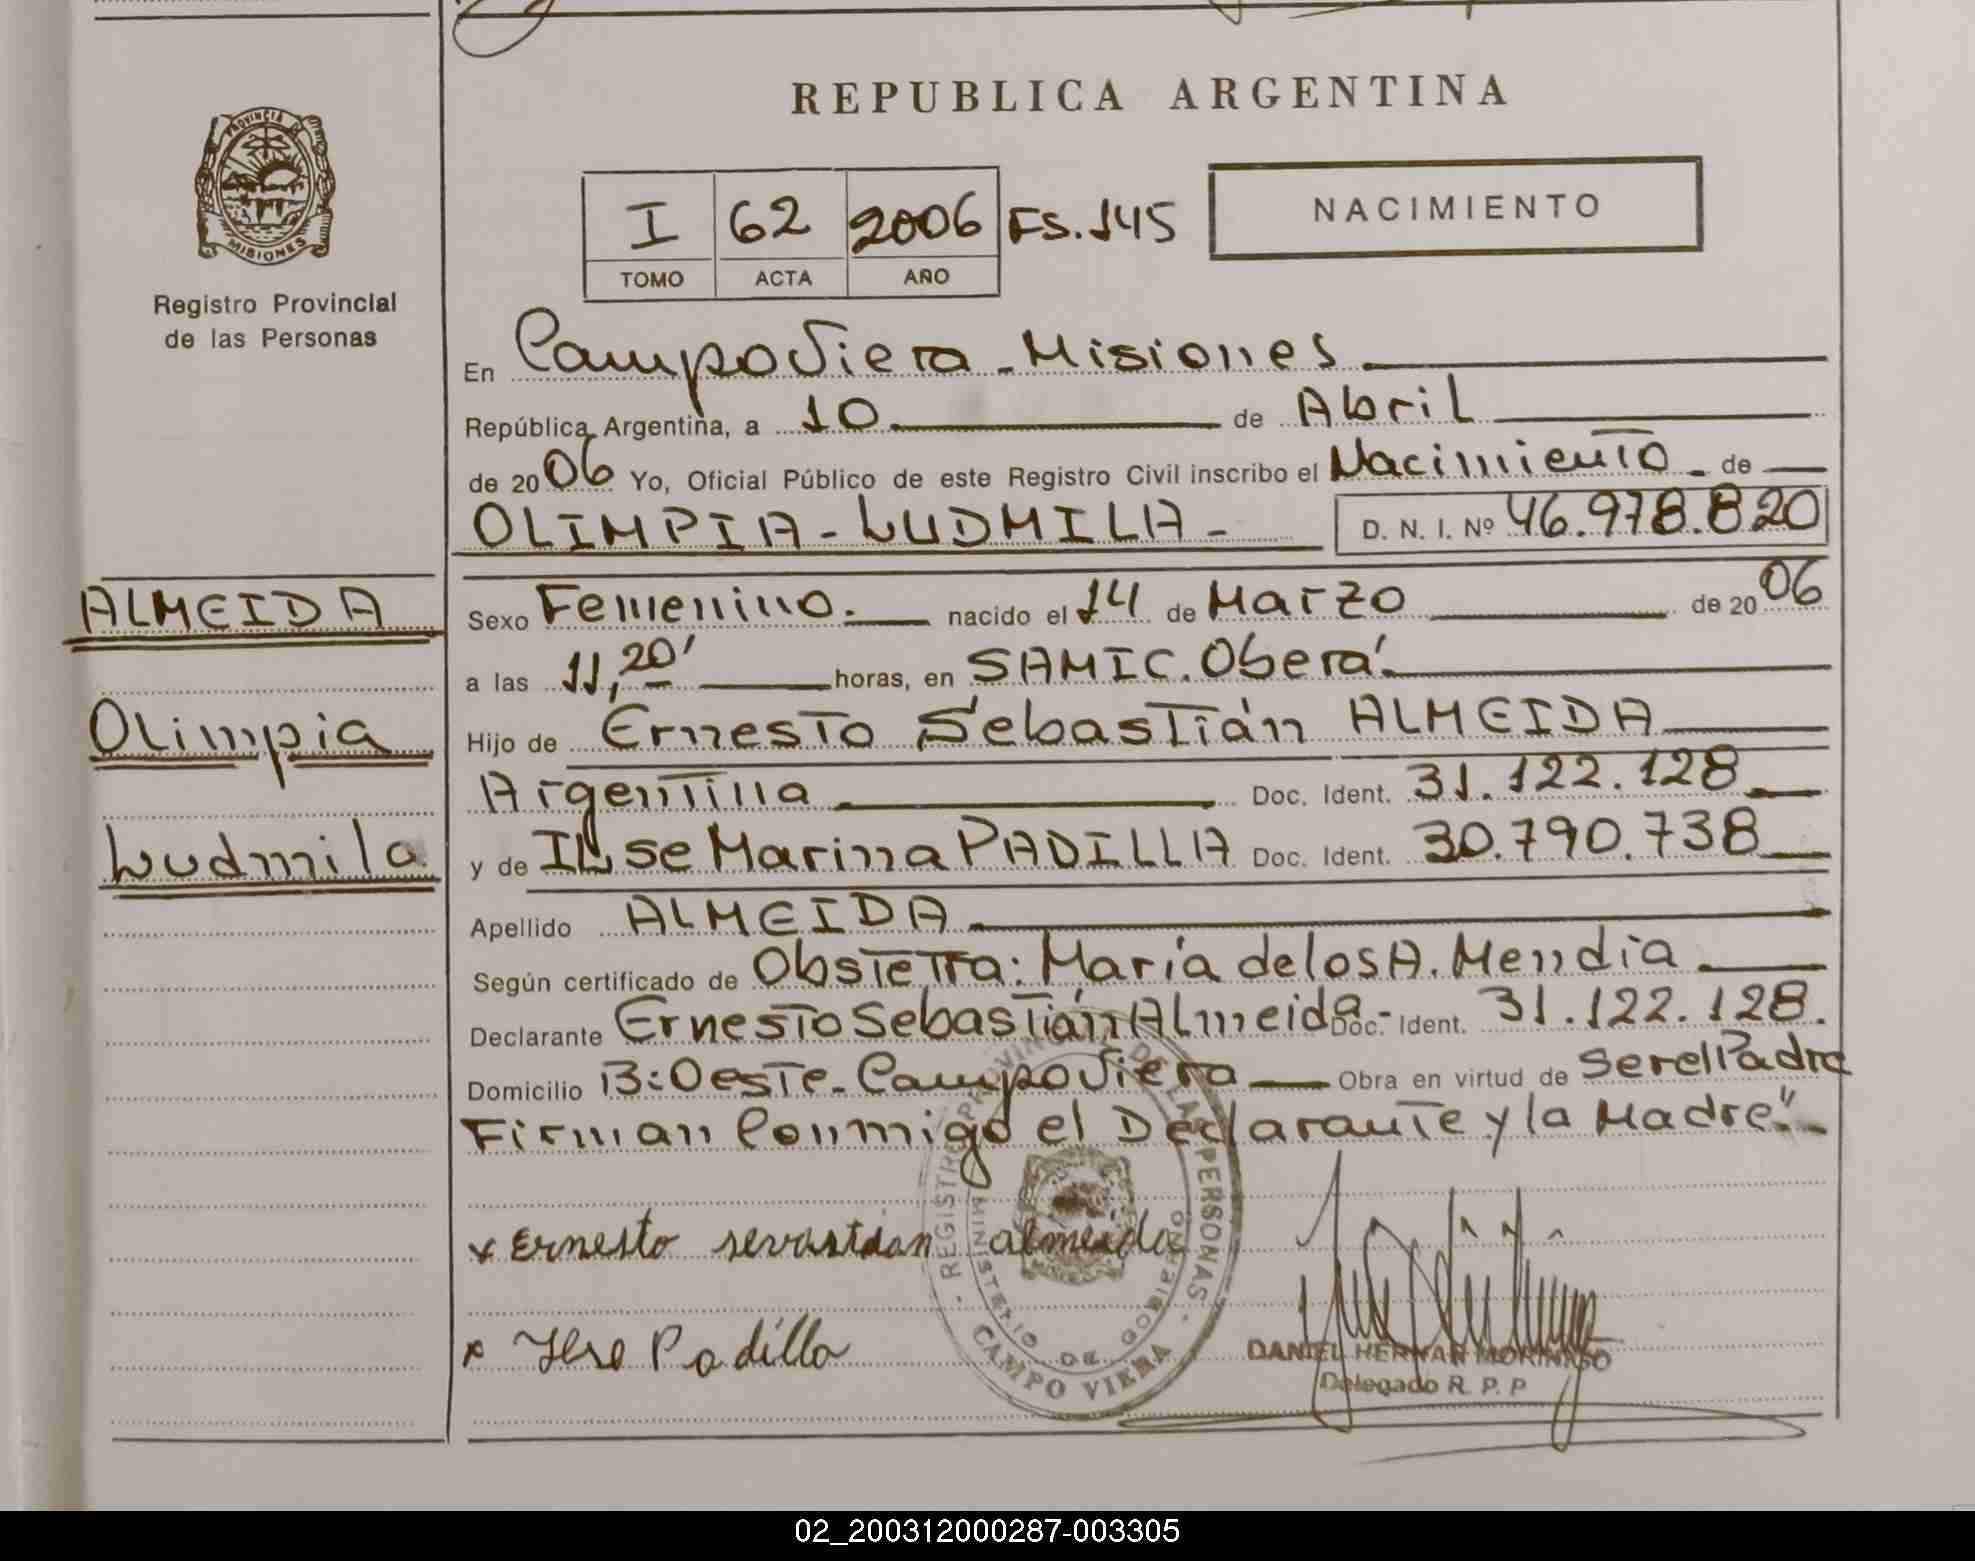 REPUBLICA ARGENTINA
PROVINCIA DE
MISIONES
Registro Provincial
de las Personas
I 62 2006 FS. 145
TOMO ACTA AÑO
NACIMIENTO
En Campo Viera - Misiones
República Argentina, a 10 de Abril
de 2006 Yo, Oficial Público de este Registro Civil inscribo el Nacimiento - de
OLIMPIA - LUDMILA - D. N. I. Nº 46.978.820
ALMEIDA
Olimpia
Ludmila
Sexo Femenino. nacido el 14 de Marzo de 2006
a las 11,20' horas, en SAMIC. Oberá.
Hijo de Ernesto Sebastián ALMEIDA
Argentina Doc. Ident. 31.122.128
y de ILse Marina PADILLA Doc. Ident. 30.790.738
Apellido ALMEIDA
Según certificado de Obstetra: María de los A. Mendia
Declarante Ernesto Sebastián Almeida - Doc. Ident. 31.122.128.
Domicilio B: Oeste - Campo Viera Obra en virtud de Ser el Padre
Firman Conmigo el Declarante y la Madre"-
x Ernesto sevastian almeida
x Ilse Padilla
REGISTRO PROVINCIAL DE LAS PERSONAS
MINISTERIO DE GOBIERNO
CAMPO VIERA
DANIEL HERNAN
Delegado R. P. P
02_200312000287-003305